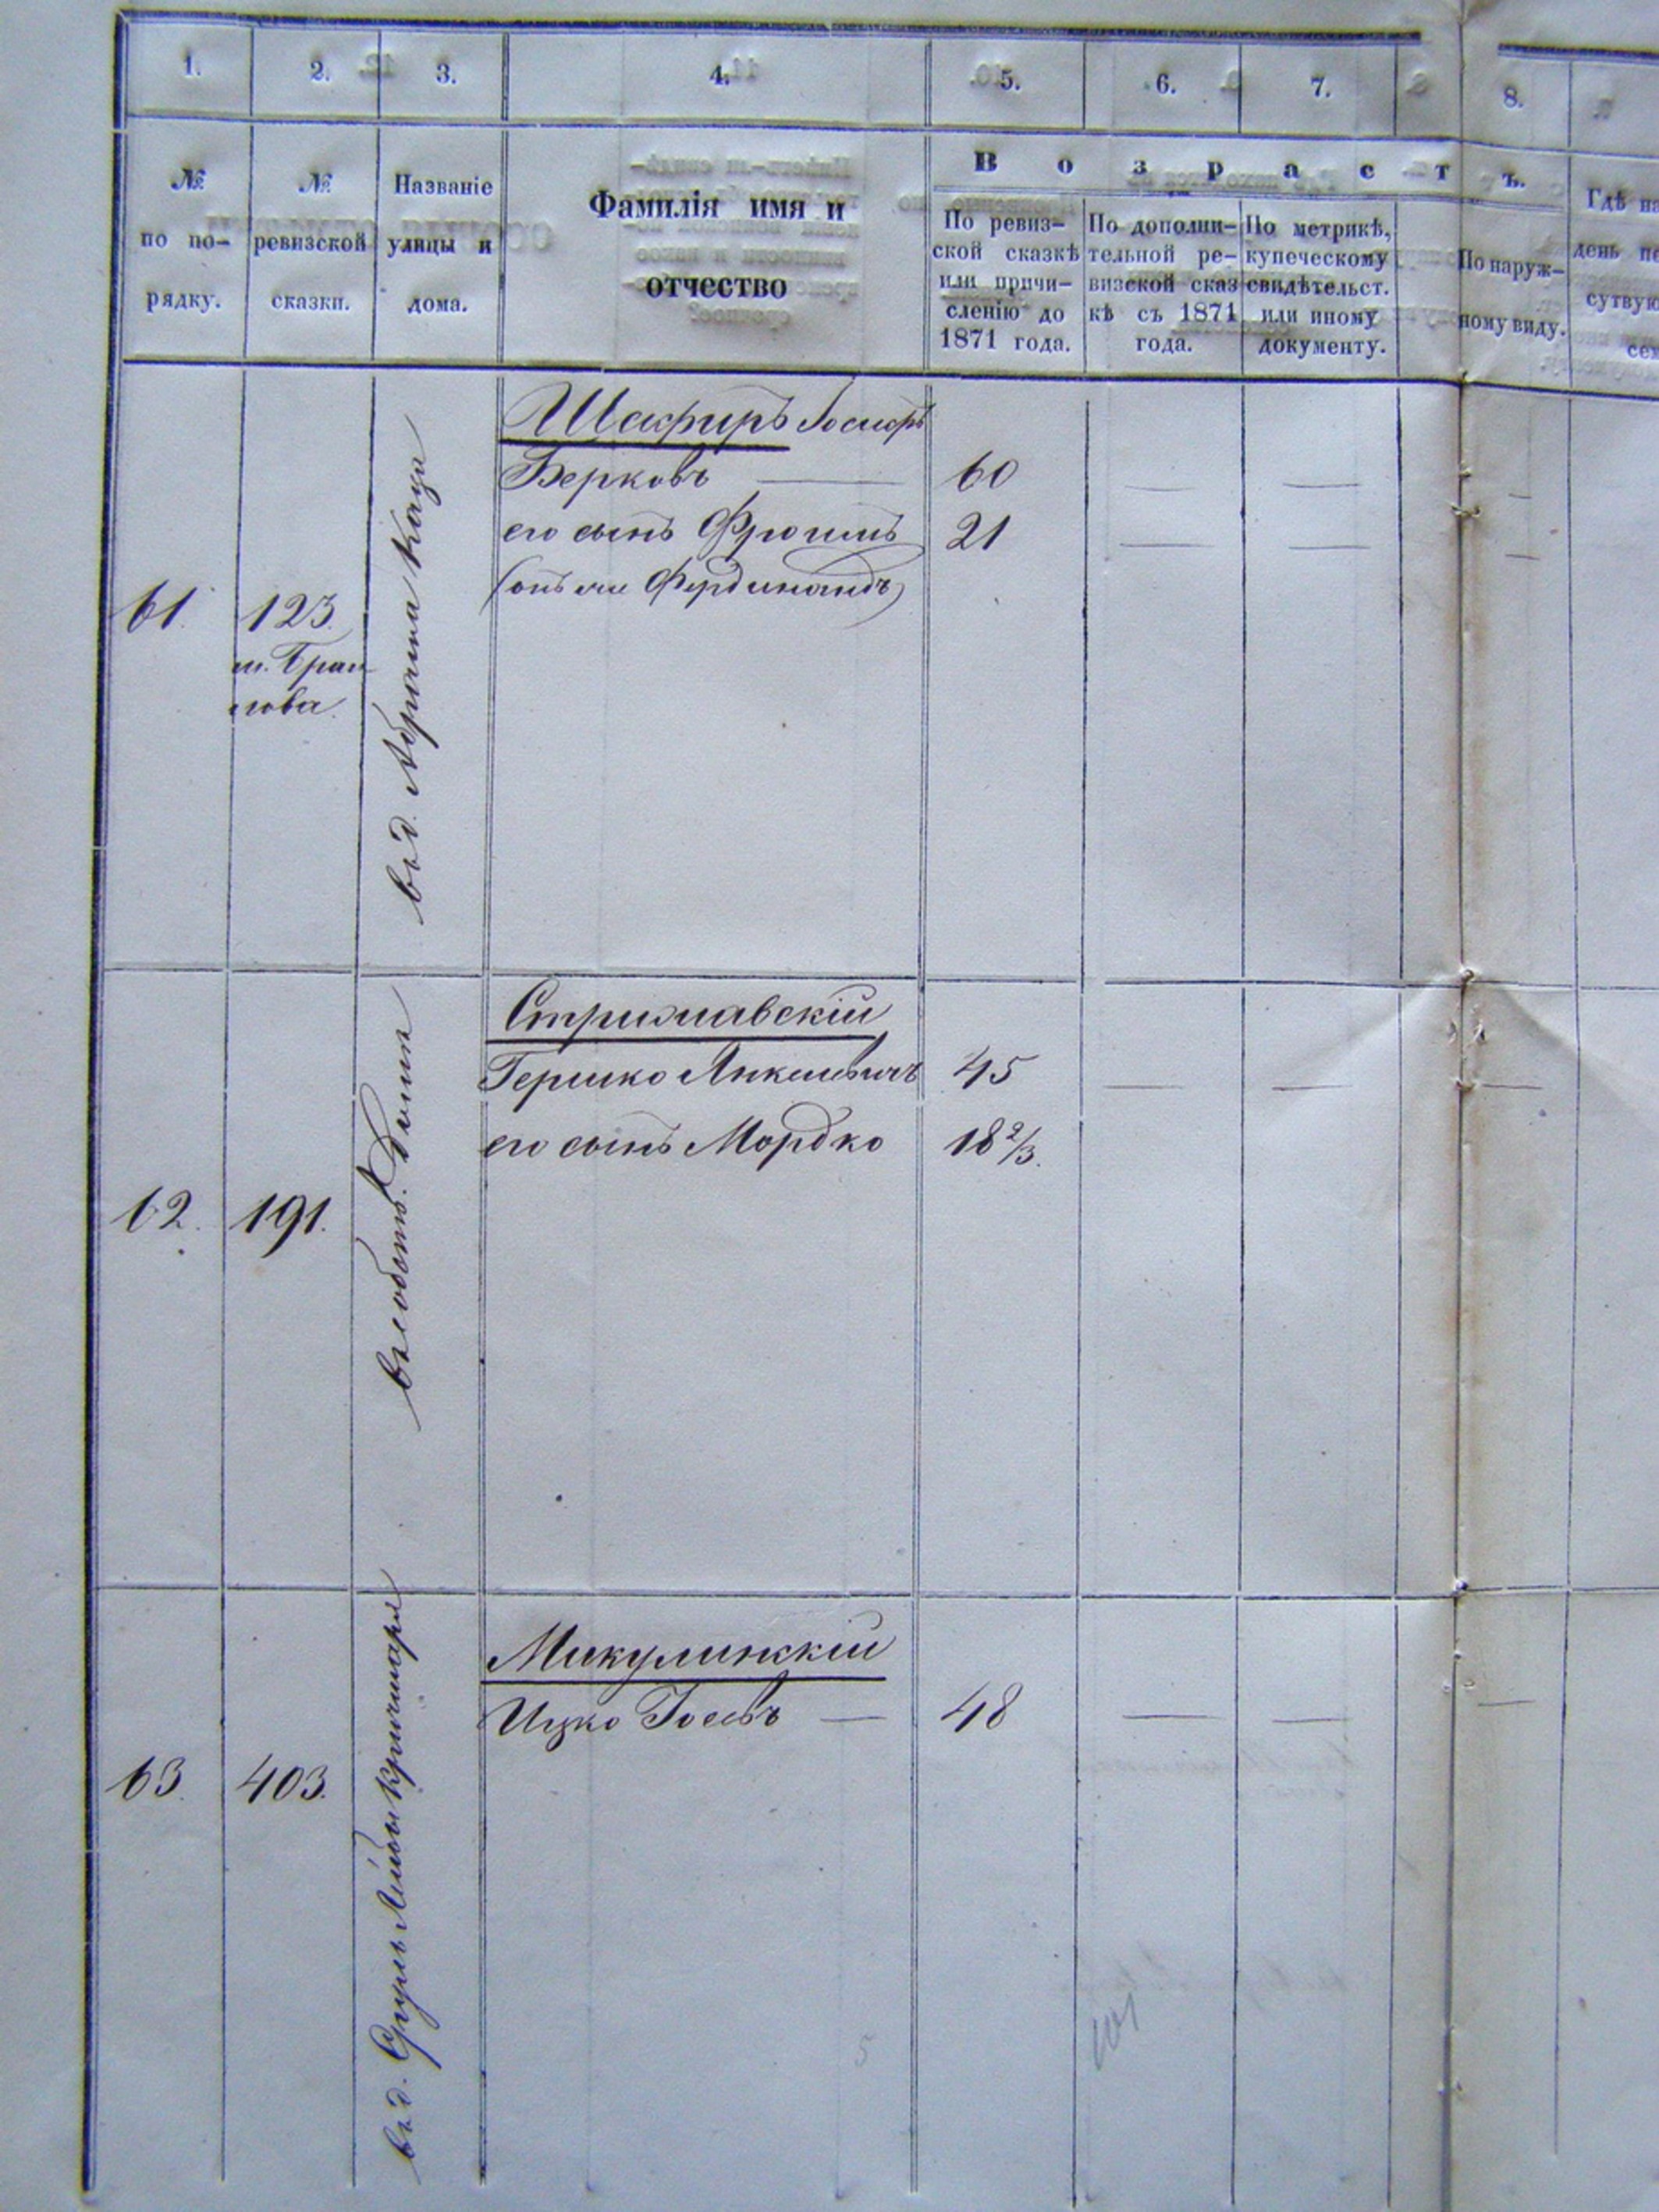 1. 2. 3. 4. 5. 6. 7. 8.
№ по по-
рядку.
№ ревизской
сказки.
Названіе
улицы и
дома.
Фамилія имя и
отчество
Возрастъ.
По ревиз-
ской сказкѣ
или причи-
сленію до
1871 года.
По дополни-
тельной ре-
визской сказ
кѣ съ 1871
года.
По метрикѣ,
купеческому
свидѣтельст.
или иному
документу.
По наруж-
ному виду.
Гдѣ на
день пе
сутвую
сем
61.
123.
м. Браи
лова.
въ д. Абрама Каца
Шафиръ Іосифъ
Берковъ — 60 — — —
его сынъ Фроимъ 21 — — —
(онъ же Фердинандъ)
62.
191.
въ собств. домѣ
Стрижавскій
Гершко Янкелевичъ 45 — — —
его сынъ Мордко 18 2/3.
63.
403.
въ д. Сруль Лейбы
Микулинскій
Ицко Іосевъ — 48 — — —
5